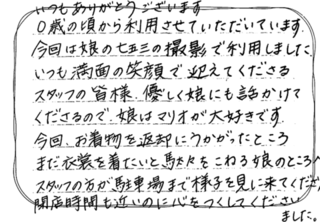 いつもありがとうございます
0歳の頃から利用させていただいています
今回は娘の七五三の撮影で利用しました。
いつも満面の笑顔で迎えてくださる
スタッフの皆様、優しく娘にも話かけて
くださるので、娘はマリオが大好きです。
今回、お着物を返却にうかがったところ
まだ衣装を着たいと駄々をこねる娘のところへ
スタッフの方が駐車場まで様子を見に来てくださり
閉店時間も近いのに心をつくしてください
ました。